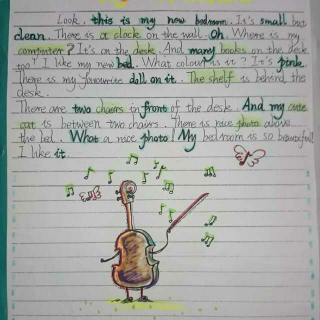 Look, this is my new bedroom. It's small but
clean. There is a clock on the wall. Oh. Where is my
computer? It's on the desk. And many books on the desk
too. I like my new bed. What colour is it? It's pink.
There is my favourite doll on it. The shelf is behind the
desk.
There are two chairs in front of the desk. And my cute
cat is between two chairs. There is nice photo above
the bed. What a nice photo! My bedroom is so beautiful!
I like it.